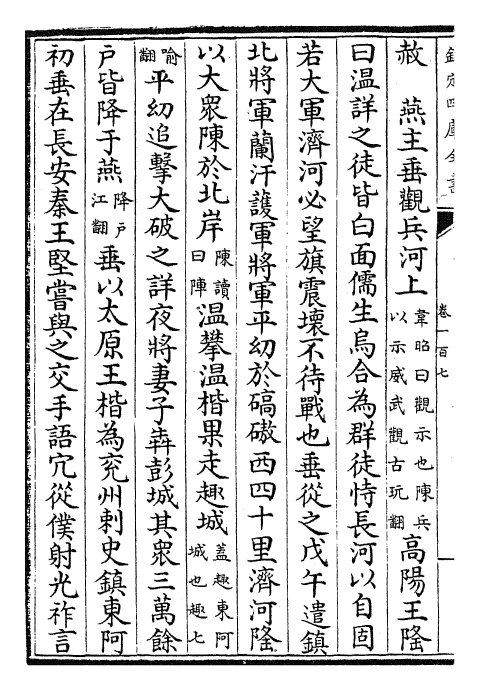 欽定四庫全書
卷一百七
赦　燕主垂觀兵河上韋昭曰觀示也陳兵以示威武觀古玩翻高陽王隆
曰溫詳之徒皆白面儒生烏合為群徒恃長河以自固
若大軍濟河必望旗震壞不待戰也垂從之戊午遣鎮
北將軍蘭汗護軍將軍平幼於碻磝西四十里濟河隆
以大衆陳於北岸陳讀曰陣溫攀溫楷果走趣城蓋趣東阿城也趣七
喻翻平幼追擊大破之詳夜將妻子犇彭城其衆三萬餘
戶皆降于燕降戶江翻垂以太原王楷為兖州刺史鎮東阿
初垂在長安秦王堅嘗與之交手語宂從僕射光祚言